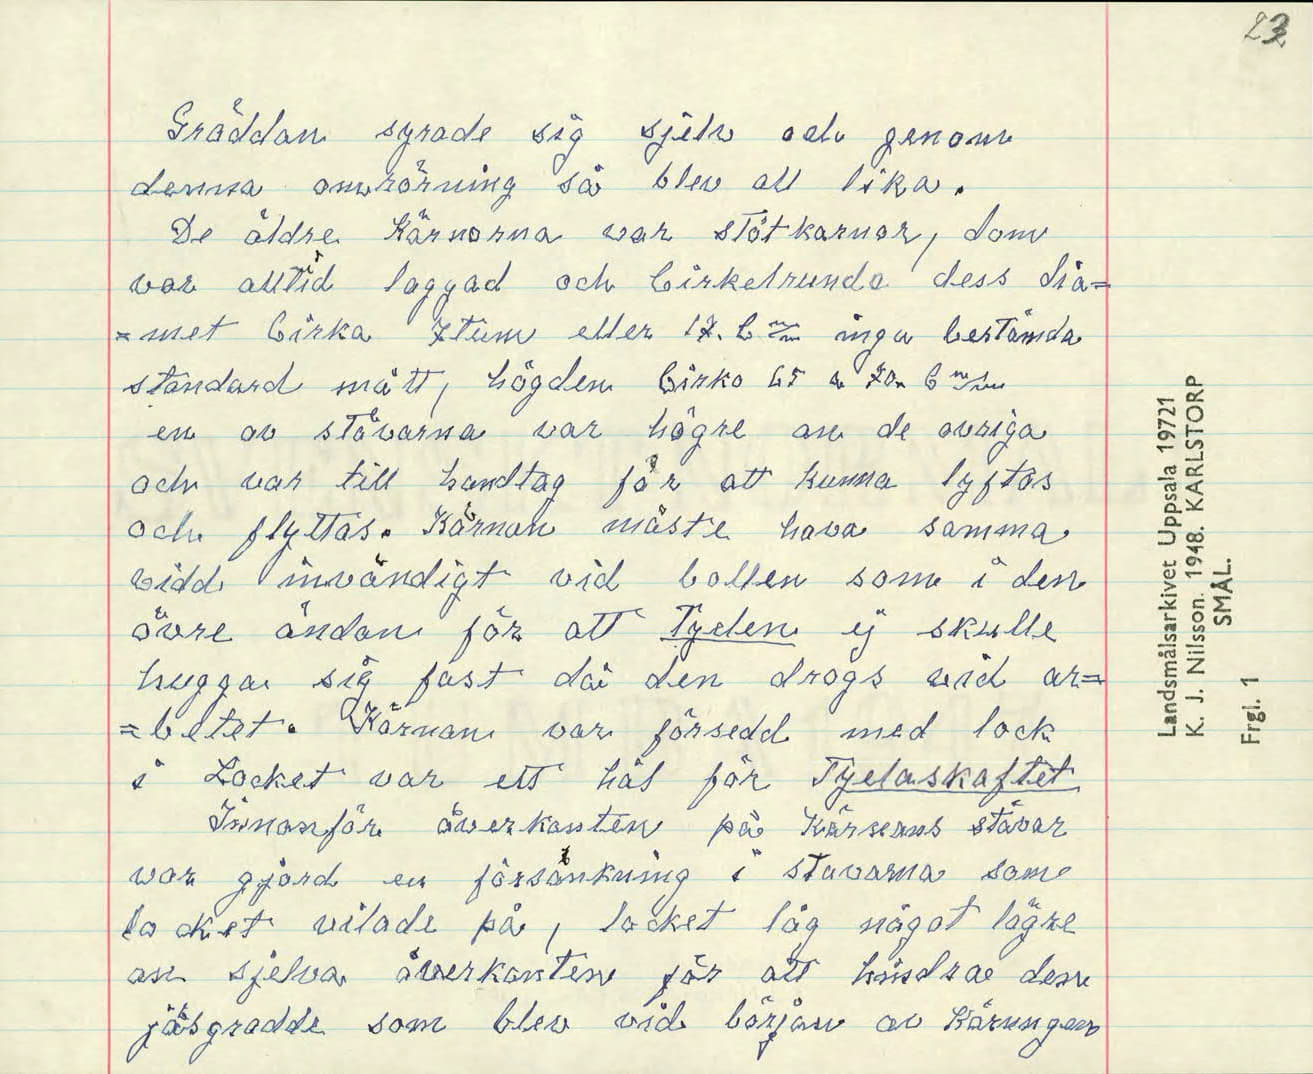 23
Gräddan syrade sig sjelv och genom
denna omrörning så blev all lika.
De äldre Kärnorna var stötkarnor, dom
var alltid laggad och Cirkelrunda dess dia=
=met Cirka 7tum eller 17. C m/m inga bestämda
standard mått, högden Cirka 65 a 70. C m/m
en av stävarna var högre an de övriga
och var till handtag för att kunna lyftas
och flyttas. Kärnan måste hava samma
vidd invändigt vid botten som i den
övre ändan för att Tyelen ej skulle
hugga sig fast då den drogs vid ar=
=betet. Kärnan var försedd med lock
i Locket var ett hål för Tyelaskaftet
Innanför överkanten på Kärnans stävar
var gjord en försänkning i stavarna som
locket vilade på, locket låg något lägre
an sjelva överkanten för att hindra den
jäsgradde som blev vid början av Kärningen
Landsmålsarkivet Uppsala 19721
K. J. Nilsson. 1948. KARLSTORP
SMÅL.
Frgl. 1